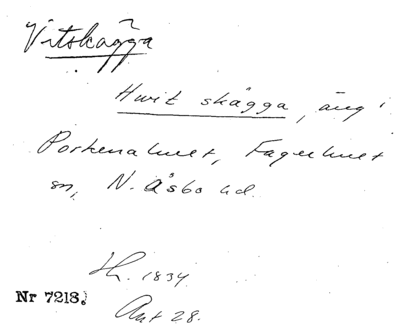 Vitskägga
Hwit skägga, äng i
Porkenahult, Fagerhult
sn, N. Åsbo hd.
Lh. 1834
Nr 7218.
Akt 28.